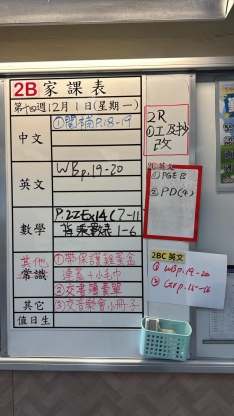 2B 家課表
第十四週12月1日(星期一)
中文
①閱補P.18-19
英文
WBp.19-20
數學
P.22Ex14(7-11
背乘數表1-6
其他:
常識
①帶保護罩套盒
連蓋+小毛巾
②交書譜費單
其它
③交音樂會小冊子
值日生
2R
①工及抄
改
2C 英文
① PGEB
② PD(4)
2BC 英文
① WBp.19-20
② Grp.15-16